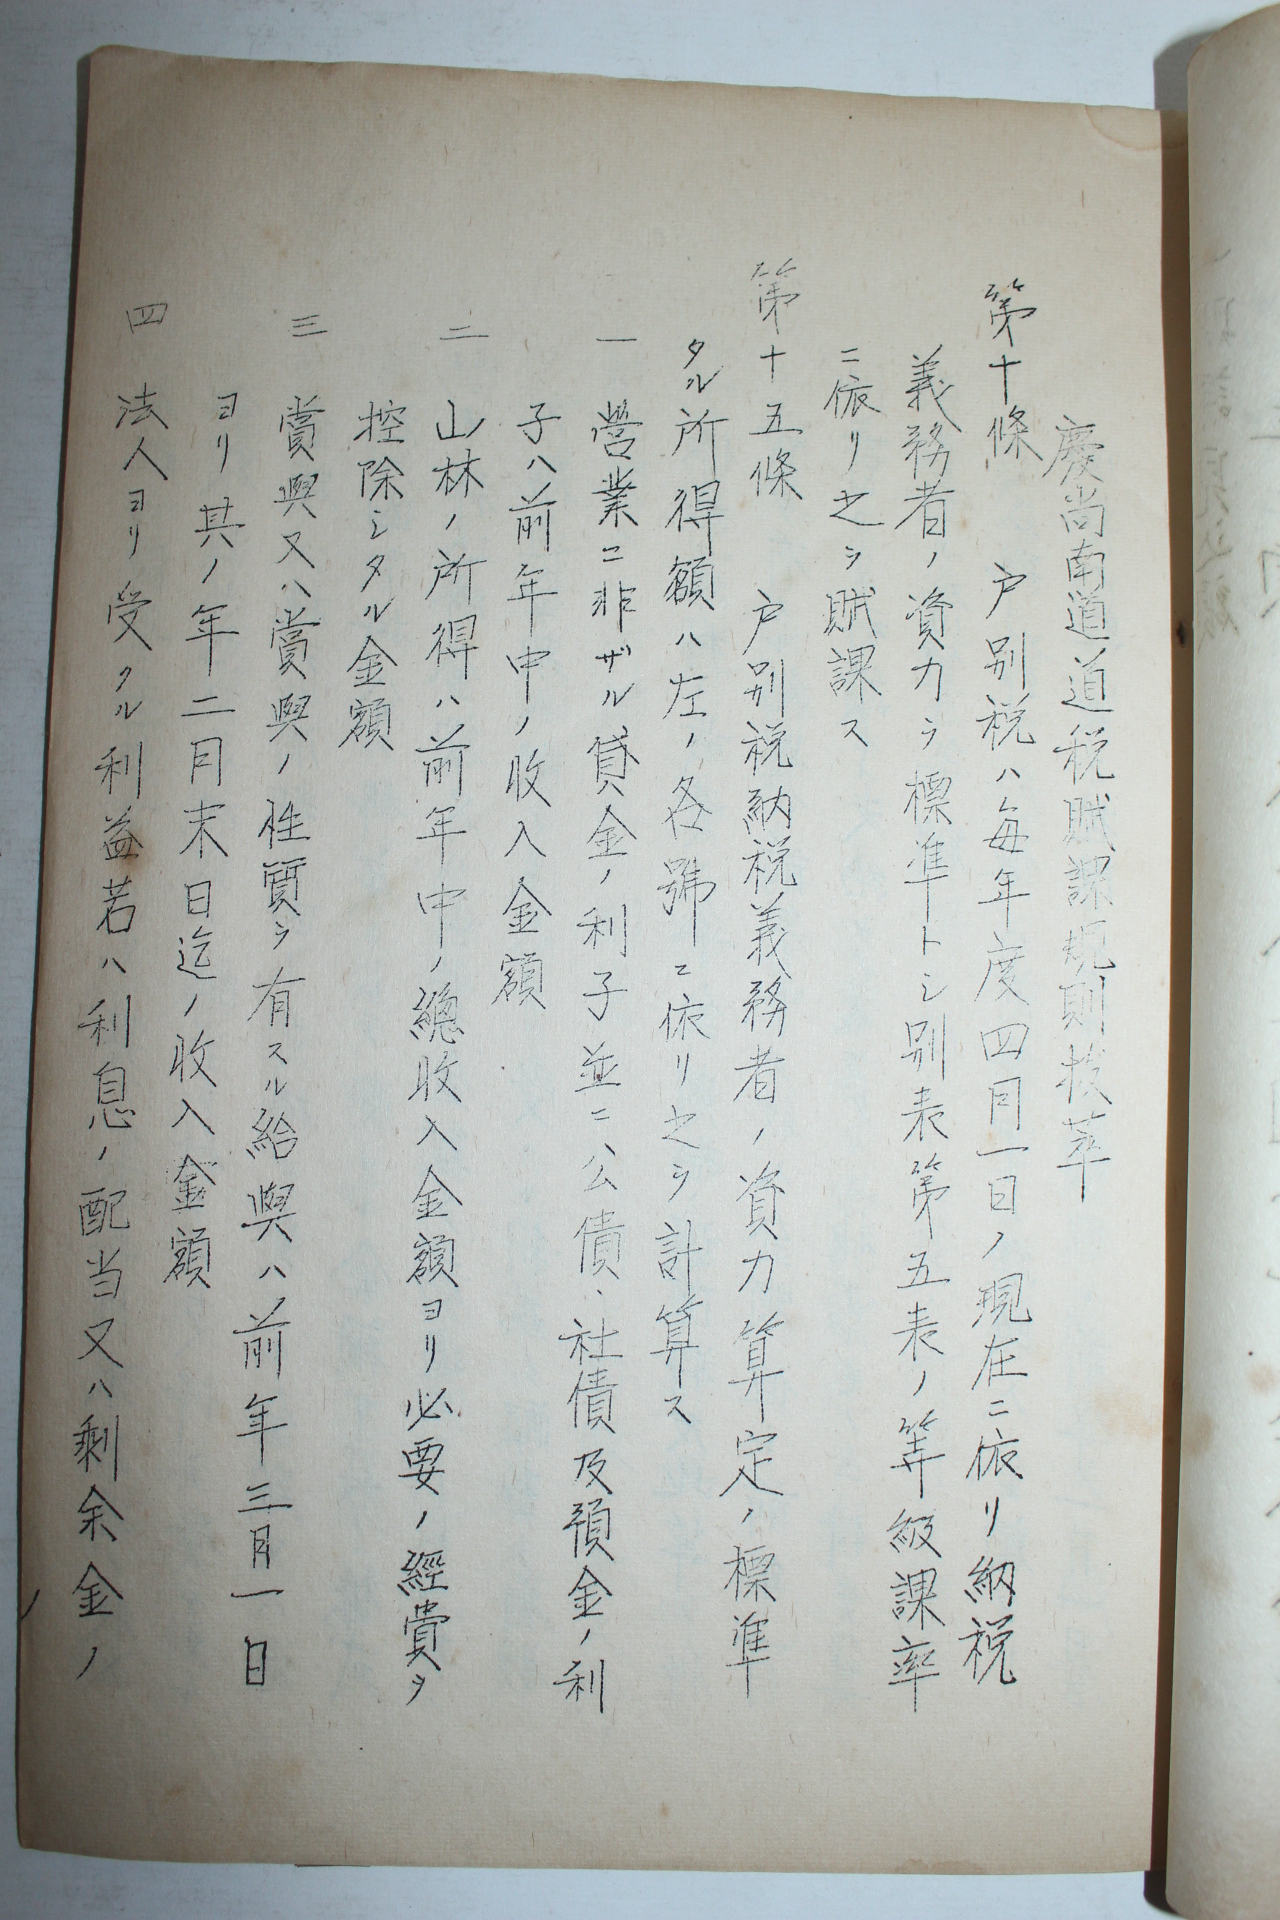 慶尚南道道税賦課規則抜萃
第十條　戸別税ハ毎年度四月一日ノ現在ニ依リ納税
義務者ノ資力ヲ標準トシ別表第五表ノ等級課率
ニ依リ之ヲ賦課ス
第十五條　戸別税納税義務者ノ資力算定ノ標準
タル所得額ハ左ノ各號ニ依リ之ヲ計算ス
一　營業ニ非ザル貸金ノ利子並ニハ公債、社債及預金ノ利
子ハ前年中ノ收入金額
二　山林ノ所得ハ前年中ノ總收入金額ヨリ必要ノ經費ヲ
控除シタル金額
三　賞與又ハ賞與ノ性質ヲ有スル給與ハ前年三月一日
ヨリ其ノ年二月末日迄ノ收入金額
四　法人ヨリ受クル利益若ハ利息ノ配当又ハ剰余金ノ